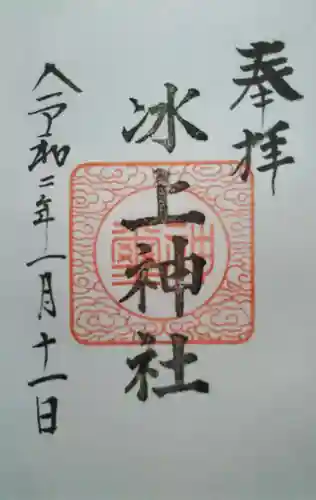 奉拝
氷上神社
令和二年一月十一日